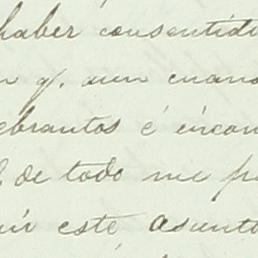 haber consentido
n q. aun cuand
ebrantos é incon
l. de todo me p
uir este asunto